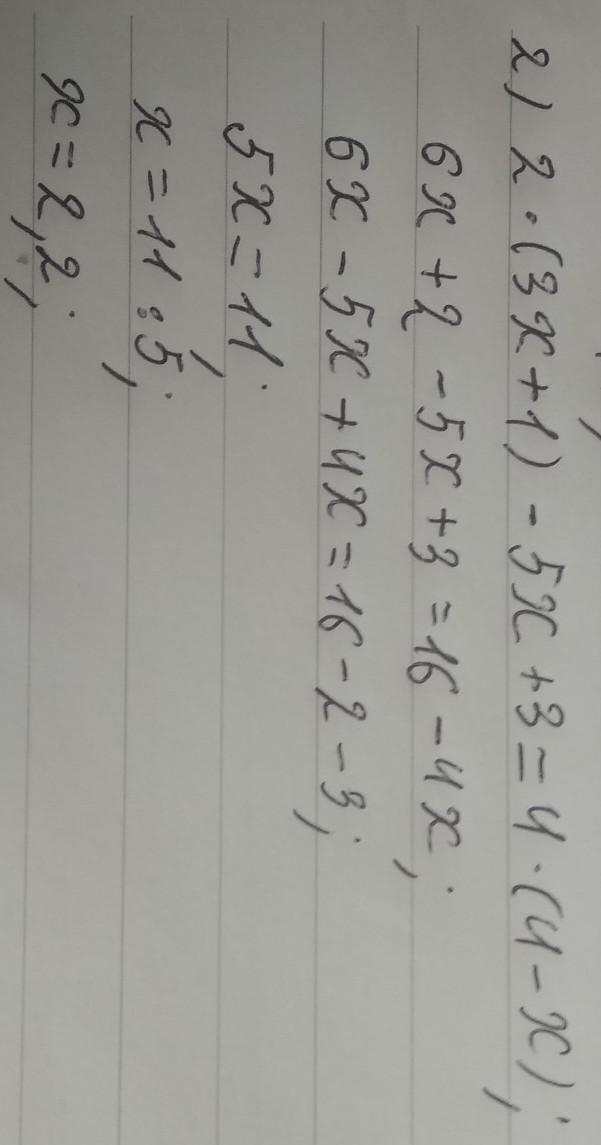 2) 2·(3x+1)-5x+3=4·(4-x);
6x+2-5x+3=16-4x;
6x-5x+4x=16-2-3;
5x=11;
x=11:5;
x=2,2;